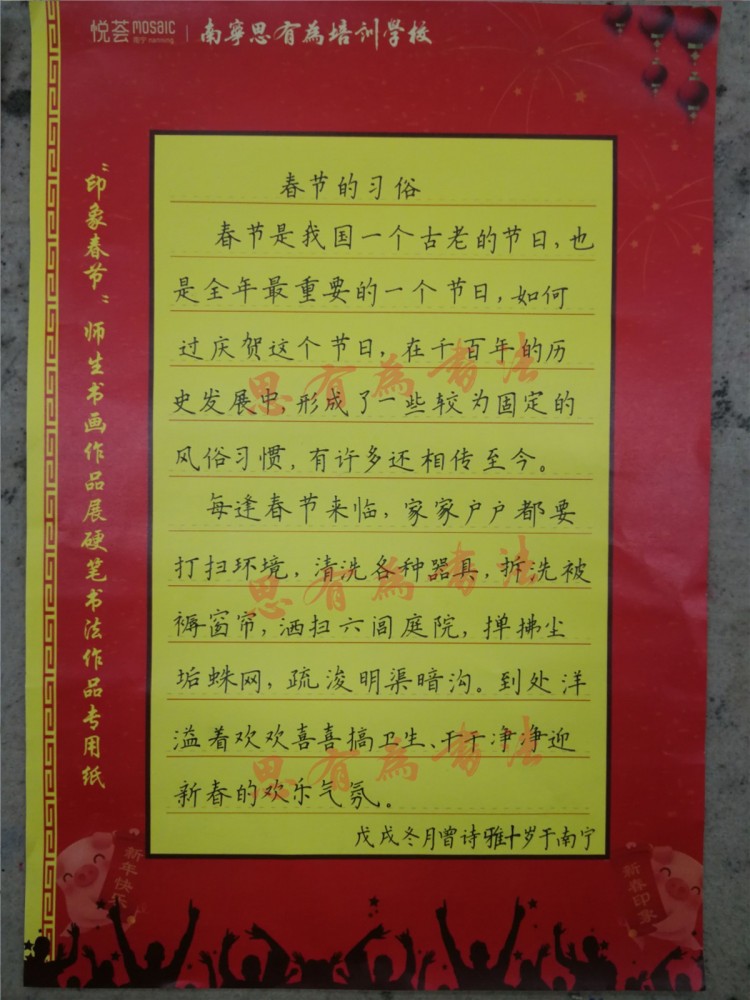 悦荟 MOSAIC 南宁 nanning | 南寧思有為培训学校
"印象春节"师生书画作品展硬笔书法作品专用纸
春节的习俗
春节是我国一个古老的节日,也
是全年最重要的一个节日,如何
过庆贺这个节日,在千百年的历
史发展中,形成了一些较为固定的
风俗习惯,有许多还相传至今。
每逢春节来临,家家户户都要
打扫环境,清洗各种器具,拆洗被
褥窗帘,洒扫六闾庭院,掸拂尘
垢蛛网,疏浚明渠暗沟。到处洋
溢着欢欢喜喜搞卫生、干干净净迎
新春的欢乐气氛。
戊戌冬月曾诗雅十岁于南宁
思有為书法
思有為书法
思有為书法
新年快乐
新春印象